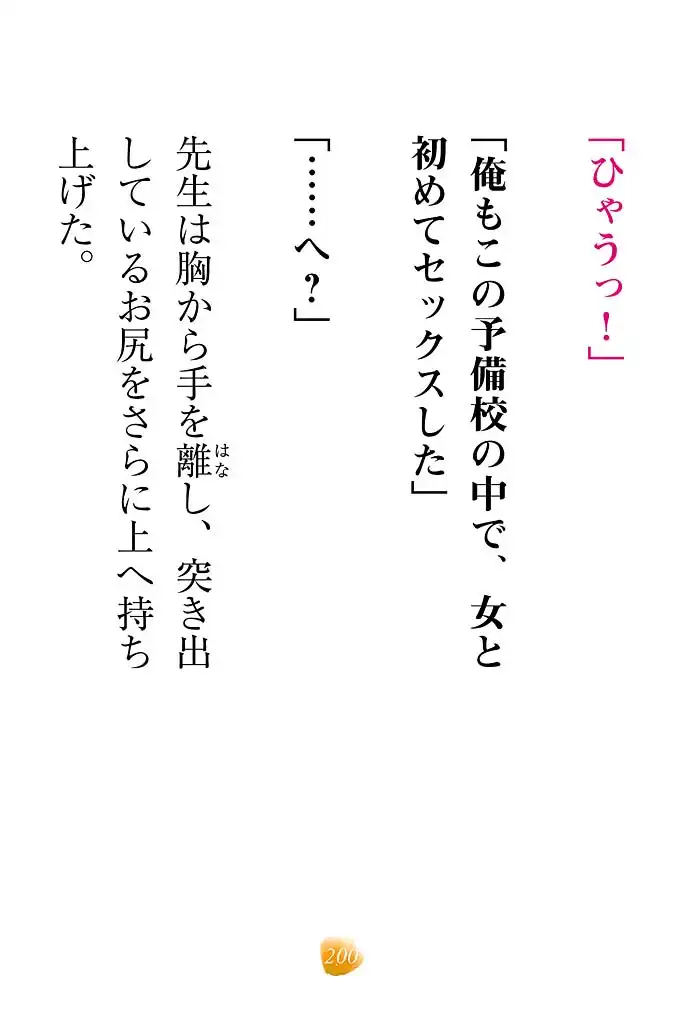 「ひゃうっ！」
「俺もこの予備校の中で、女と
初めてセックスした」
「……へ？」
先生は胸から手を離し、突き出
はな
しているお尻をさらに上へ持ち
上げた。
200